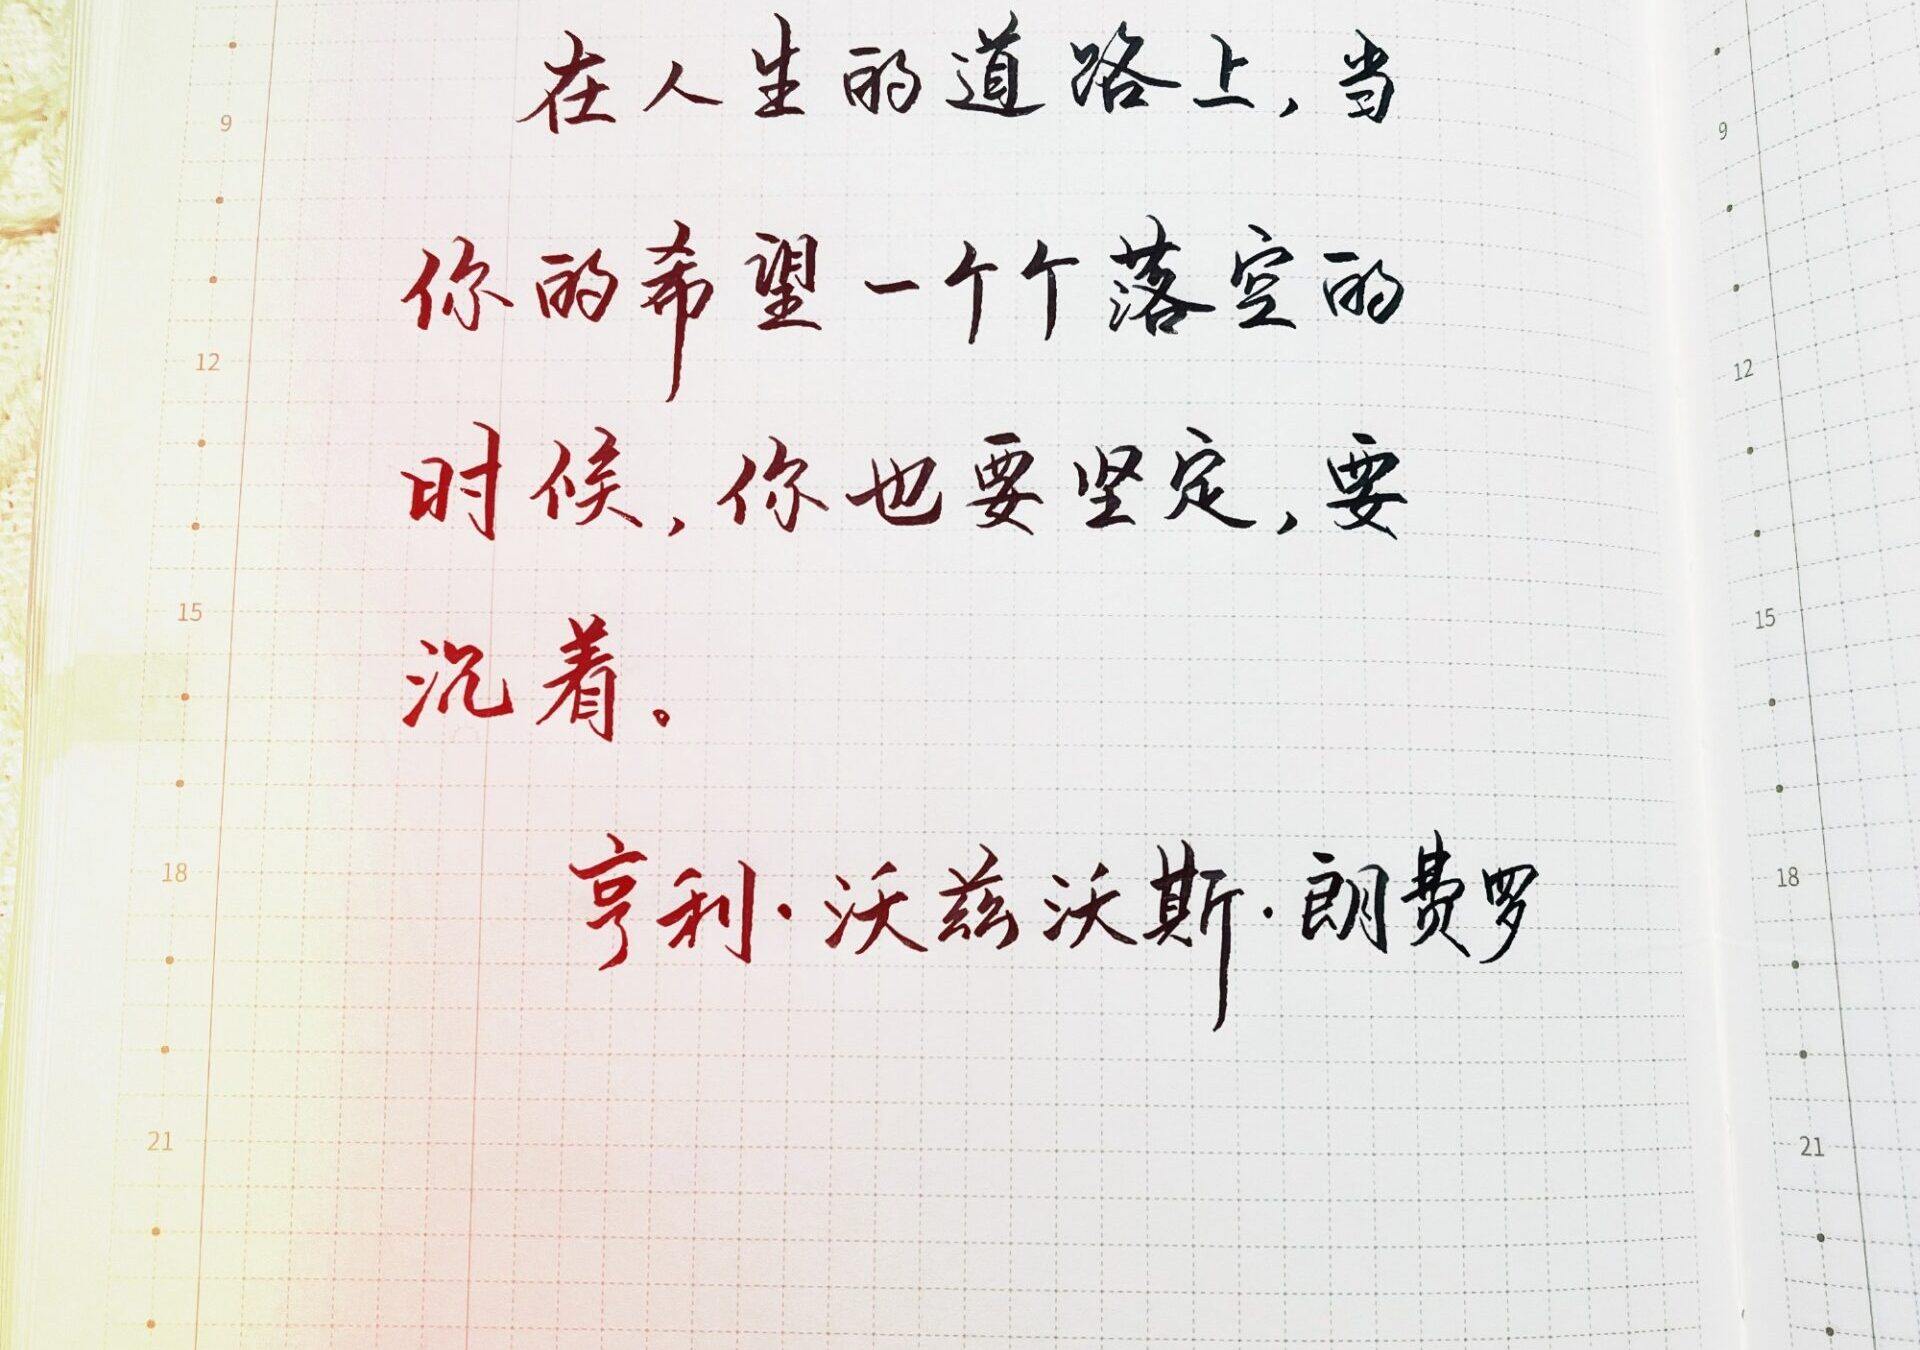 在人生的道路上,当
9
9
你的希望一个个落空的
12
12
时候,你也要坚定,要
15
15
沉着。
18
亨利·沃兹沃斯·朗费罗
18
21
21